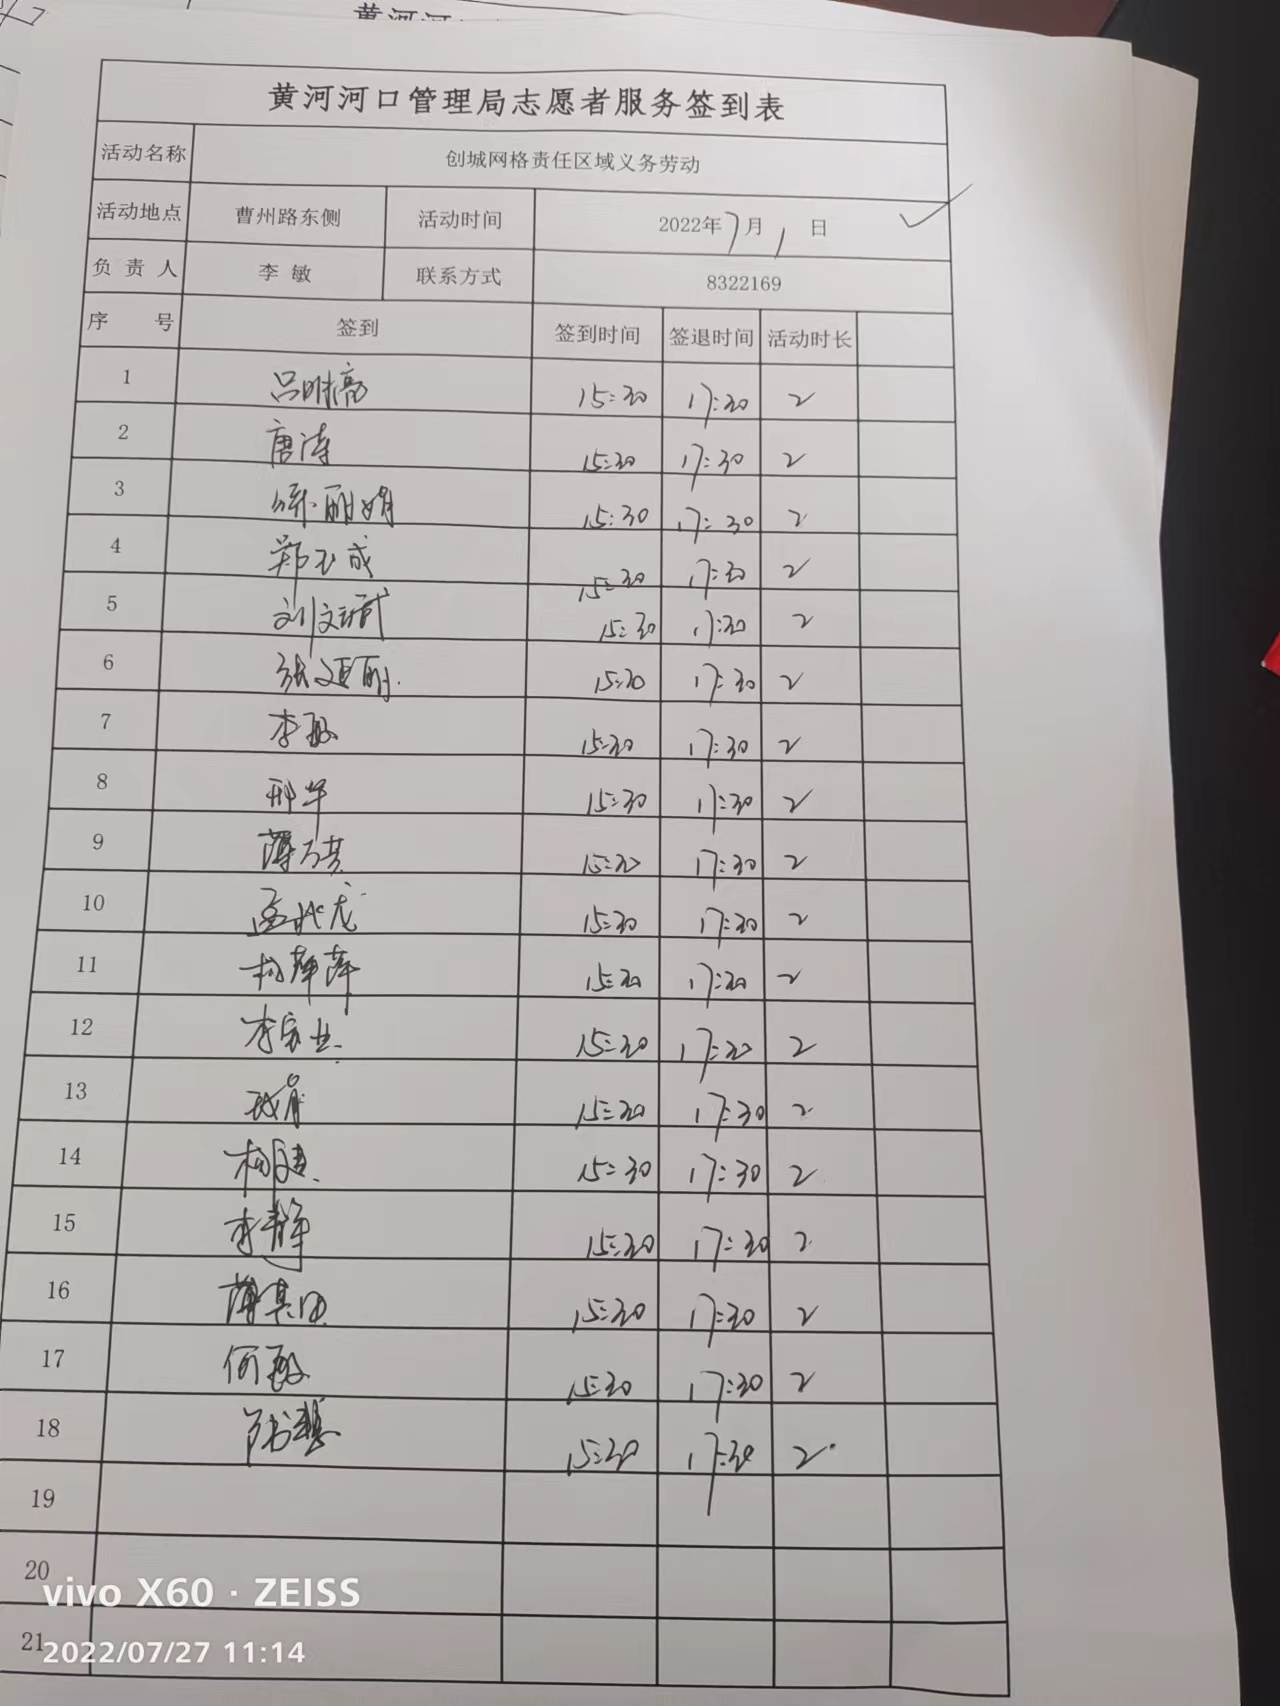 黄河河口管理局志愿者服务签到表
活动名称 创城网格责任区域义务劳动
活动地点 曹州路东侧 活动时间 2022年7月1日
负责人 李敏 联系方式 8322169
序号 签到 签到时间 签退时间 活动时长
1 15:30 17:30 2
2 唐涛 15:30 17:30 2
3 15:30 17:30 2
4 郑玉成 15:30 17:30 2
5 15:30 17:30 2
6 15:30 17:30 2
7 李敏 15:30 17:30 2
8 邢华 15:30 17:30 2
9 15:30 17:30 2
10 孟兆龙 15:30 17:30 2
11 杨萍萍 15:30 17:30 2
12 李宗业 15:30 17:30 2
13 15:30 17:30 2
14 15:30 17:30 2
15 李静 15:30 17:30 2
16 15:30 17:30 2
17 何敏 15:30 17:30 2
18 15:30 17:30 2
19
20
21
vivo X60 · ZEISS
2022/07/27 11:14